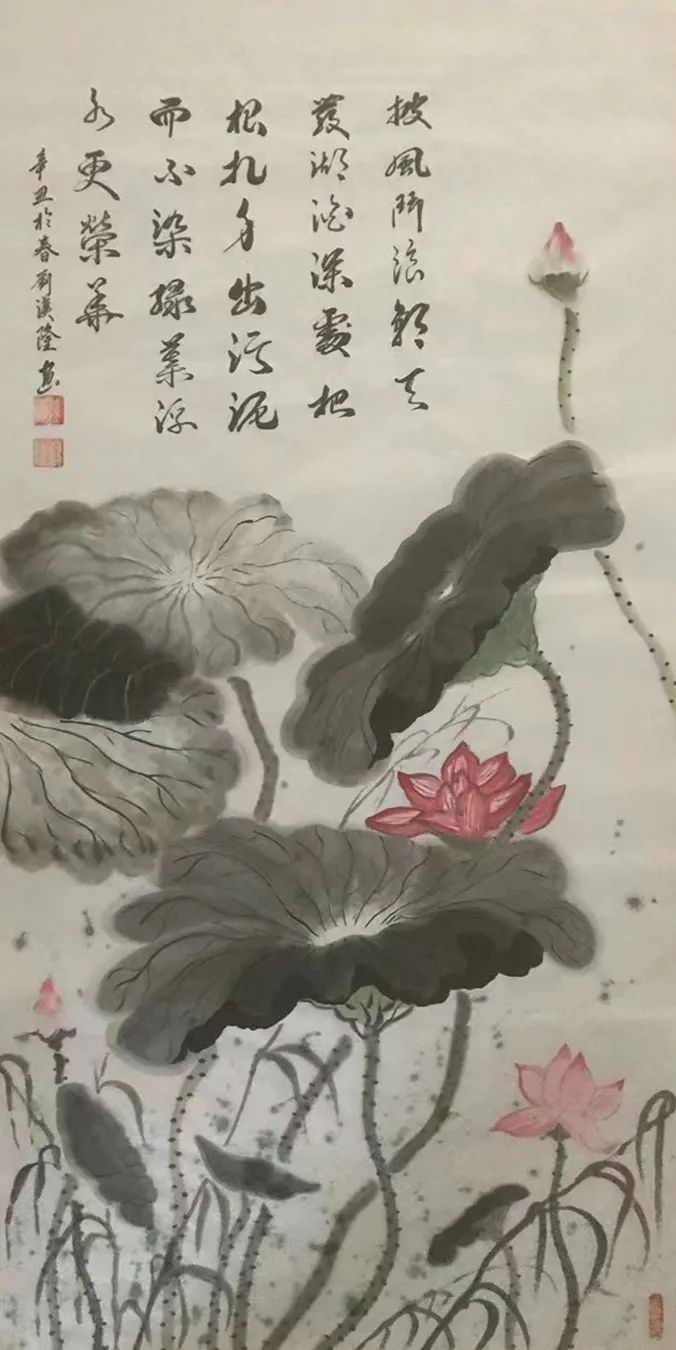 披風鬥浪朝天
發湖泊深處把
根扎身出污泥
而不染綠葉浮
水更榮華
辛丑於春劉漢隆画